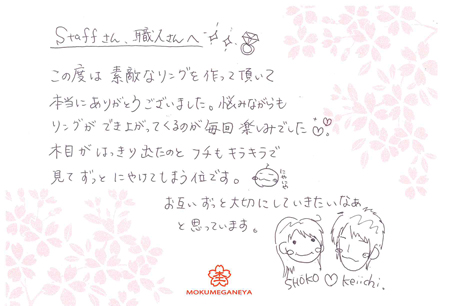 Staffさん、職人さんへ
この度は 素敵なリングを 作って 頂いて
本当にありがとうございました。悩みながらも
リングが でき上がってくるのが 毎回 楽しみでした♡♡。
木目が はっきり 出たのと フチも キラキラで
見て ずっと にやけてしまう位です。
にやにや
お互い ずっと 大切に していきたいなぁ
と 思っています。
SHOKO ♡ Keiichi.
MOKUMEGANEYA